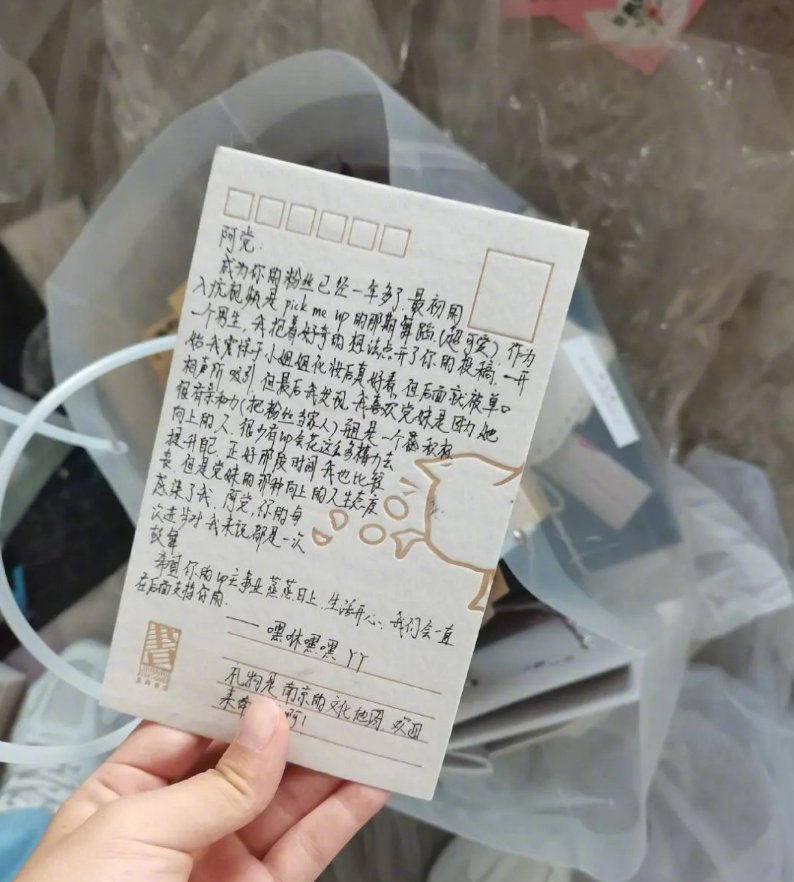 阿党:
成为你的粉丝已经一年多了,最初的
入坑视频是pick me up的那期舞蹈(超可爱)作为
一个男生,我抱着好奇的想法点开了你的投稿,一开
始我震惊于小姐姐化妆后真好看,但后面就被单口
相声所吸引,但最后我发现,我喜欢党妹是因为她
很有亲和力(把粉丝当家人)祖是一个蛮积极
向上的人,很少有up会花这么多精力去
提升自己,正好那段时间我也比较
丧,但是党妹的那种向上的人生态度
感染了我,阿党,你的每
次进步对我来说都是一次
鼓舞
希望你的up主事业蒸蒸日上,生活开心,我们会一直
在后面支持你的.
——嘿咻嘿嘿YY
礼物是南京的文化地图,欢迎
来南 啊!